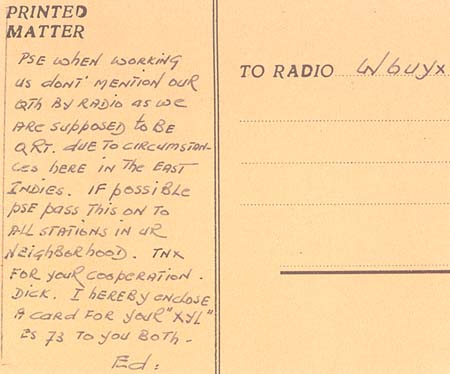 PRINTED
MATTER
PSE WHEN WORKING
US DONT' MENTION OUR
QTH BY RADIO AS WE
ARE SUPPOSED TO BE
QRT. DUE TO CIRCUMSTAN-
CES HERE IN THE EAST
INDIES. IF POSSIBLE
PSE PASS THIS ON TO
ALL STATIONS IN UR
NEIGHBORHOOD. TNX
FOR YOUR COOPERATION.
DICK. I HEREBY ENCLOSE
A CARD FOR YOUR "XYL"
ES 73 TO YOU BOTH -
ED:
TO RADIO W6uyx